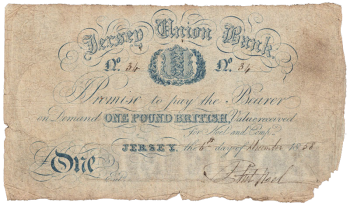 Jersey Union Bank
No. 34 No. 34
I Promise to pay the Bearer
on Demand ONE POUND BRITISH, Value received
For Self and Comp.
JERSEY, the day of
£ One